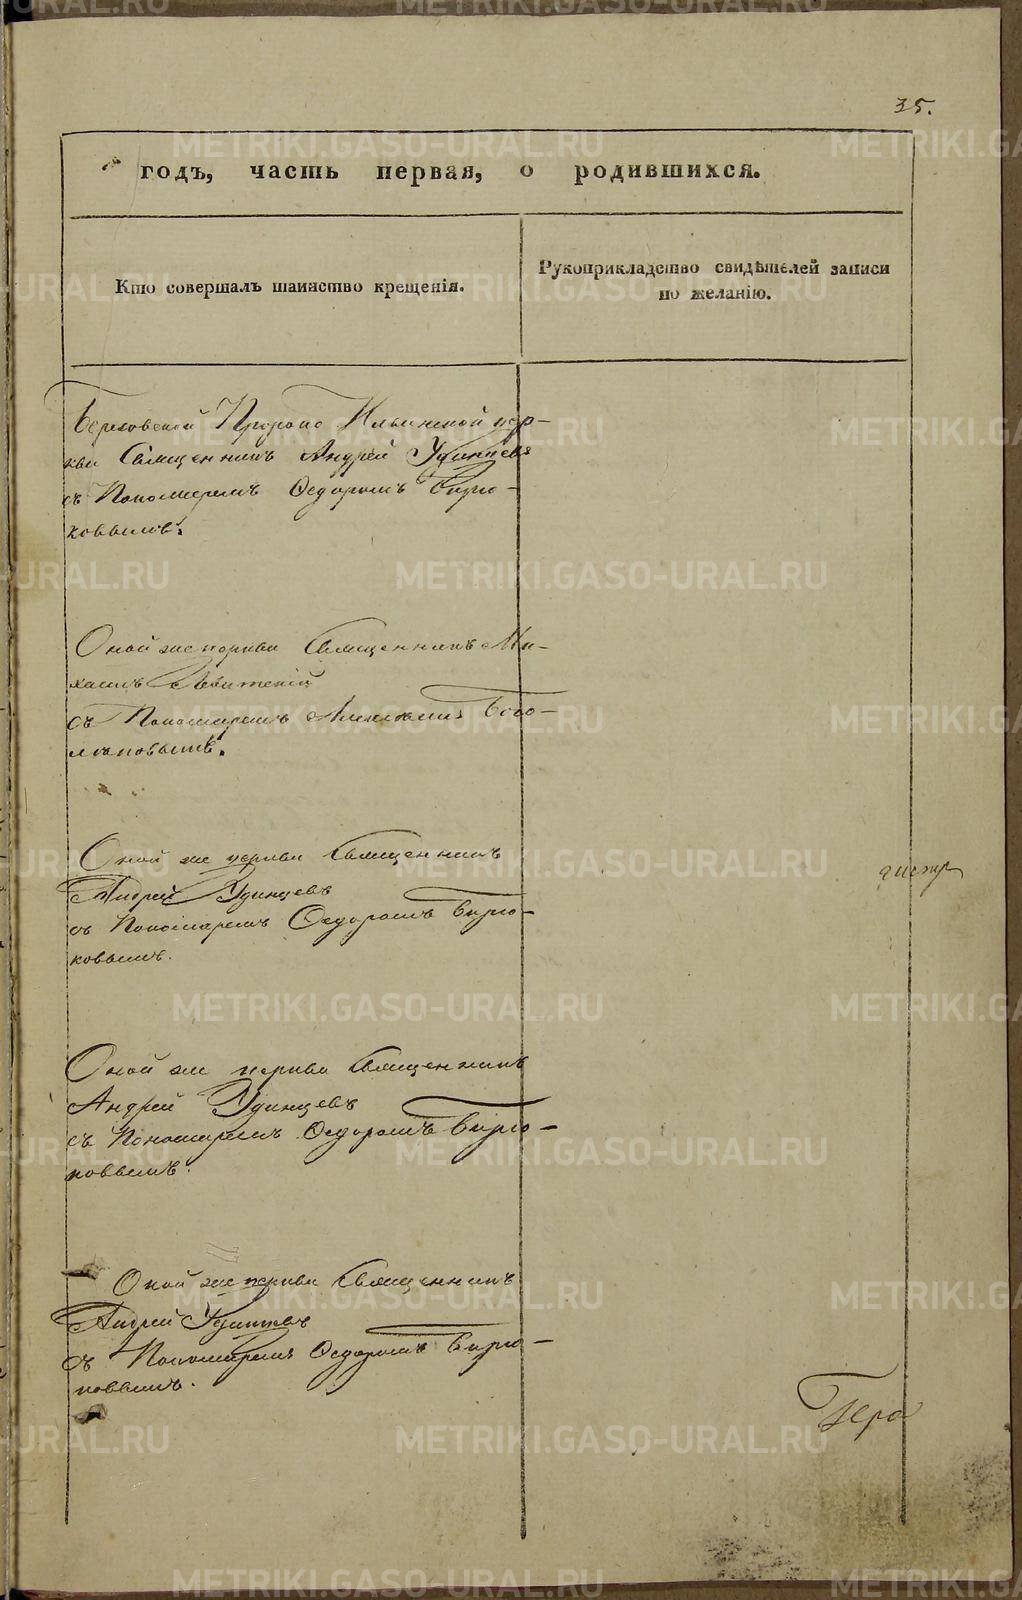 35.
годъ, часть первая, о родившихся.
Кто совершалъ таинство крещенія.
Рукоприкладство свидѣтелей записи
по желанію.
Березовской Пророко Ильинской цер-
кви Священникъ Андрей Удинцевъ
съ Пономаремъ Ѳедоромъ Бирю-
ковымъ.
Оной же церкви Священникъ Ми-
хаилъ
съ Пономаремъ Алексѣемъ Бого-
Оной же церкви Священникъ
Андрей Удинцевъ
съ Пономаремъ Ѳедоромъ Бирю-
ковымъ.
Оной же церкви Священникъ
Андрей Удинцевъ
съ Пономаремъ Ѳедоромъ Бирю-
ковымъ.
Оной же церкви Священникъ
Андрей Удинцевъ
съ Пономаремъ Ѳедоромъ Бирю-
ковымъ.
METRIKI.GASO-URAL.RU